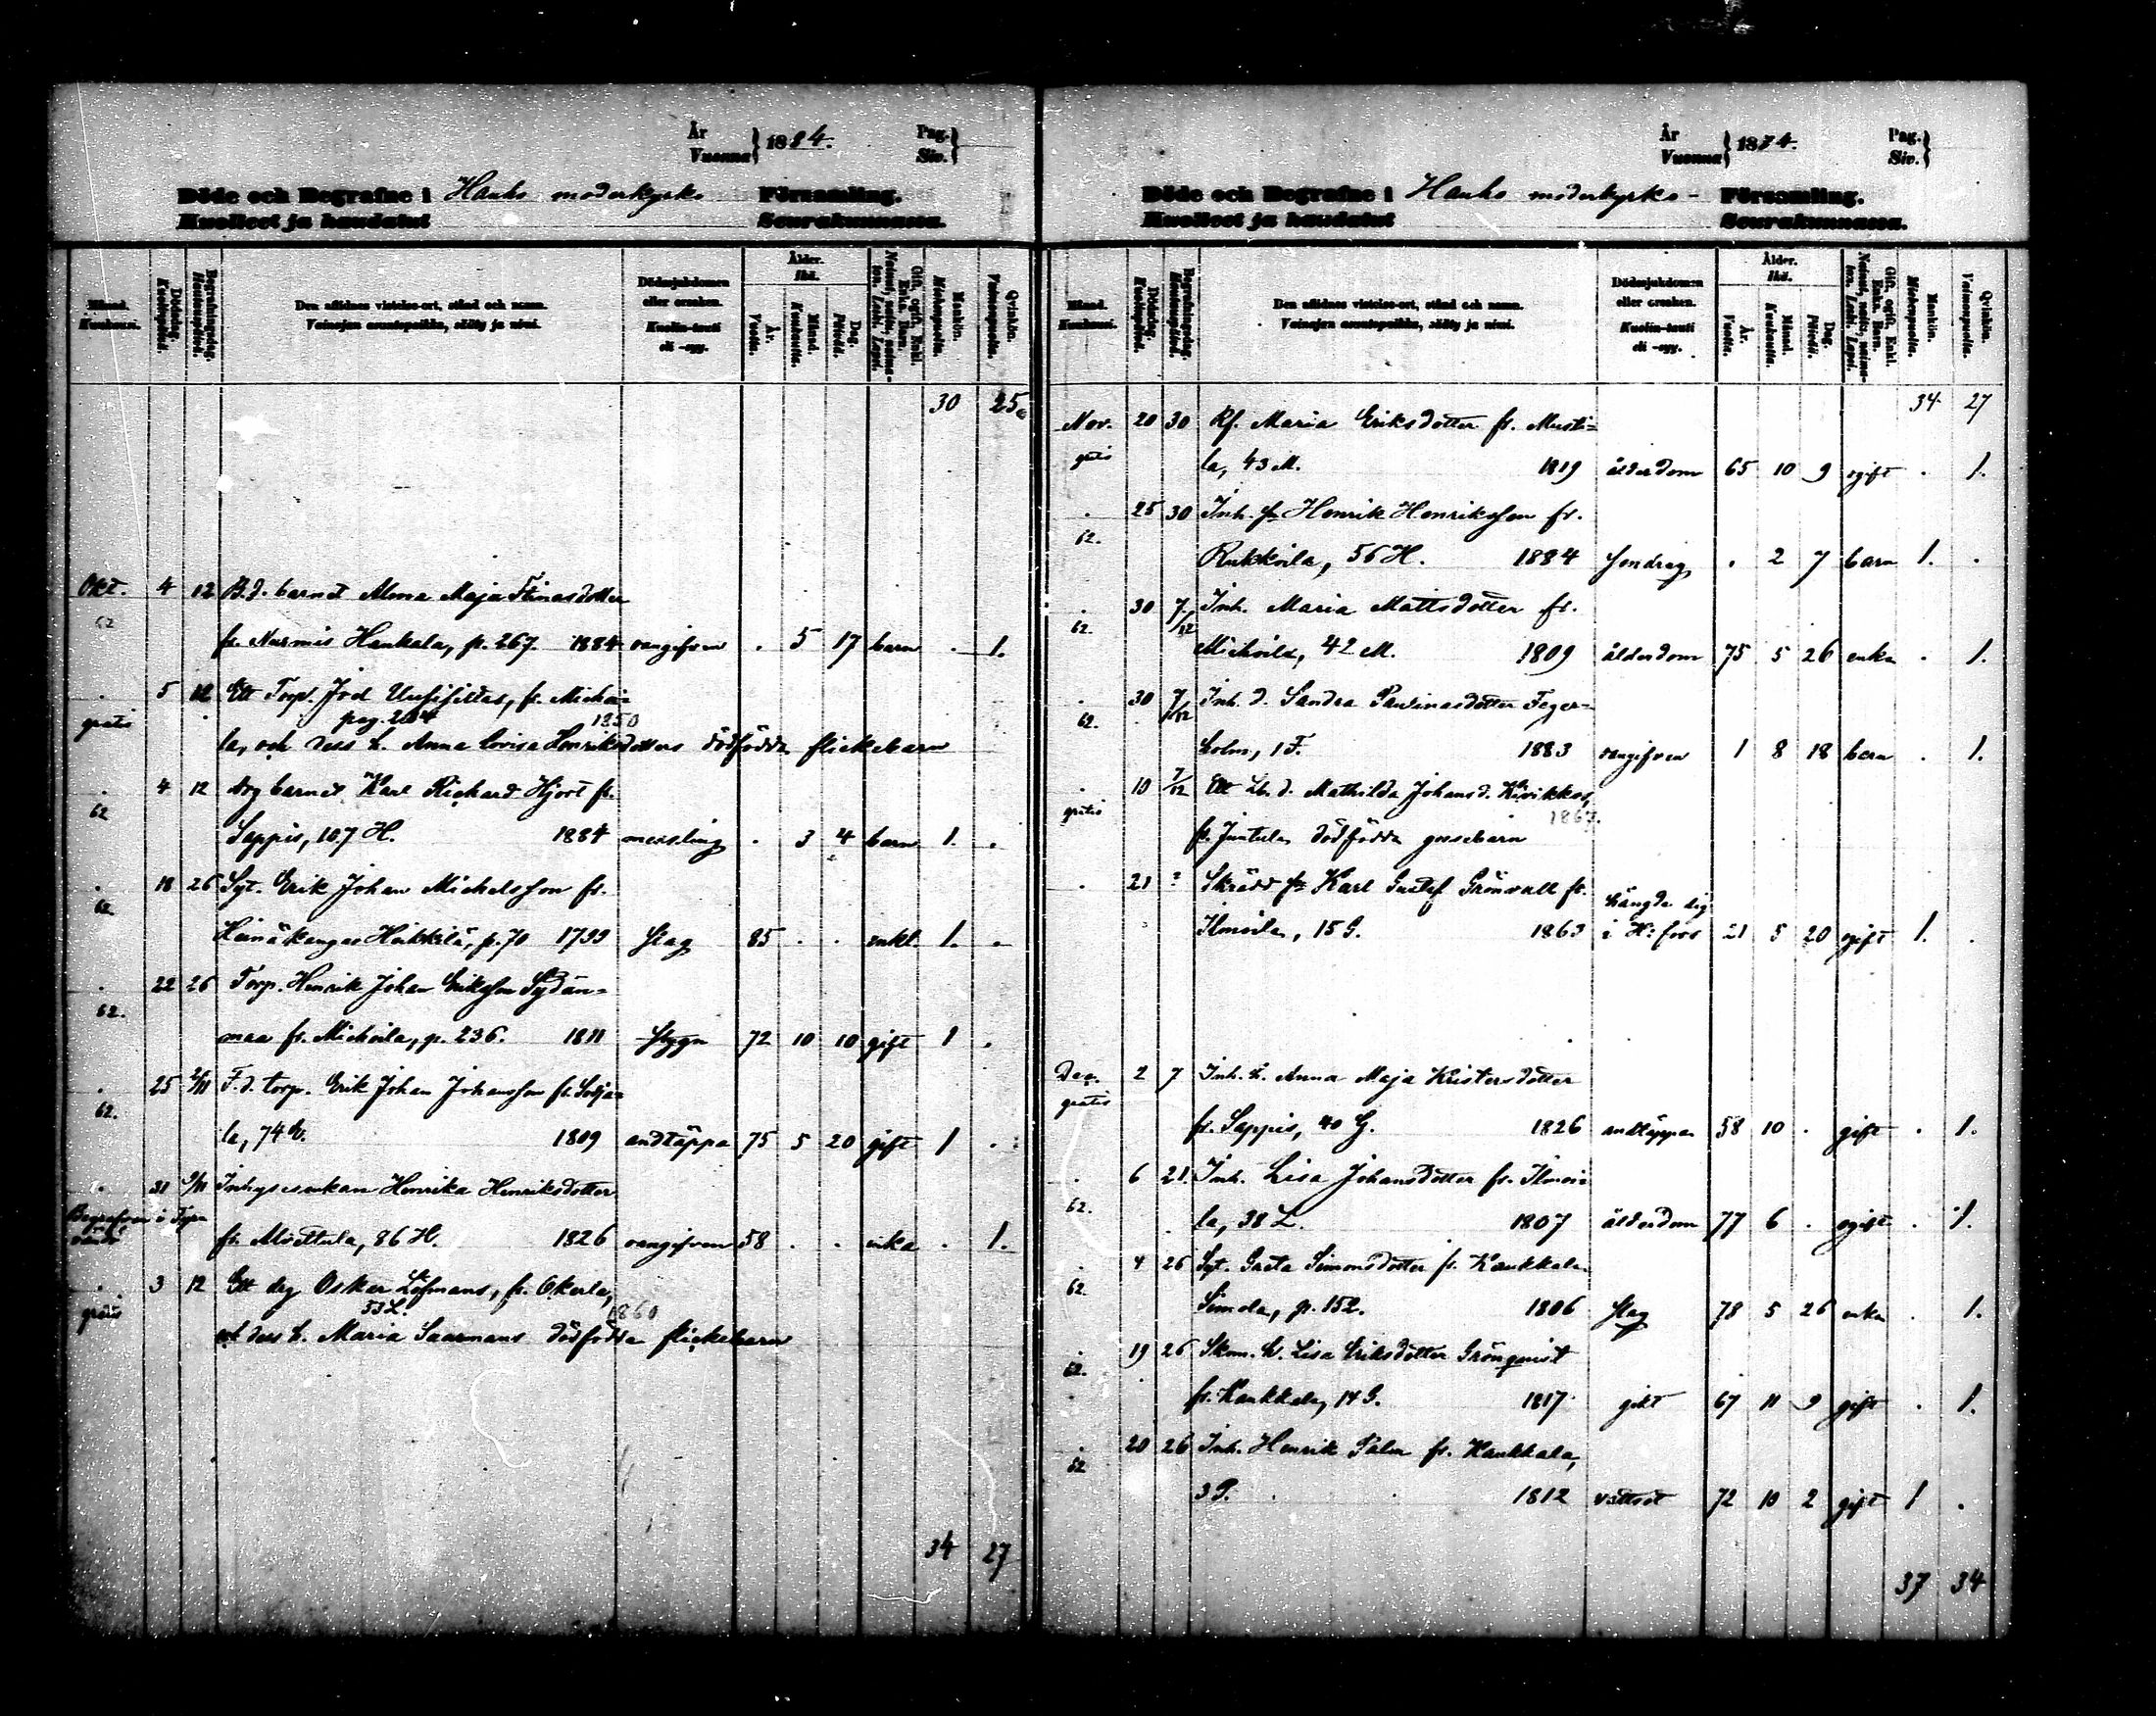 År
Vuonna } 1884.
Pag.
Siv. }
Döde och Begrafne i Hauho moderkyrko Församling.
Kuolleet ja haudatut Seurakunnassa.
Månad. Kuukausi.
Dödsdag. Kuolinpäivä.
Begrafningsdag. Hautauspäivä.
Den aflidnes vistelse-ort, stånd och namn.
Vainajan asuntopaikka, sääty ja nimi.
Dödssjukdomen eller orsaken.
Kuolin-tauti eli -syy.
Ålder. Ikä.
År. Vuotta.
Månad. Kuukautta.
Dag. Päivää.
Gift, ogift, Enkl. Enka. Barn.
Mankön. Miehenpuolta.
Qvinkön. Vaimonpuolta.
30 25
Okt. 4 12 B.d. barnet Alma Maja Stinasdotter
62 fr. Nurmis Hankala, p. 267. 1884 oangifven . 5 17 barn . 1.
. 5 12 Ett Torp. Joel Uusisillas, fr. Miehoi=
pag. 204 1850
gratis la, och dess h. Anna Lovisa Henriksdotters dödfödda flickebarn
. 4 12 drg barnet Karl Richard Hjort fr.
62 Sappis, 107 H. 1884 messling . 3 4 barn 1. .
. 18 26 Syt. Erik Johan Michelsson fr.
62. Heinäkangas Heikkilä, p. 70 1799 slag 85 . . enkl. 1. .
. 22 26 Torp. Henrik Johan Eriksson Sydän=
62. maa fr. Miehoila, p. 236. 1811 stygn 72 10 10 gift 1 .
. 25 2/11 F.d. torp. Erik Johan Johansson fr. Sotja=
62. la, 74 1809 andtäppa 75 5 20 gift 1 .
. 31 9/11 Inhysesenkan Henrika Henriksdotter
Begrafven i Tyrvändö
fr. Alvettula, 86 H. 1826 oangifven 58 . . enka . 1.
. 3 12 Ett drg Oskar Löfmans, fr. Okerla,
53 L. 1860
gratis och dess h. Maria Saarmans dödfödda flickebarn
34 27
År
Vuonna } 1884.
Pag.
Siv. }
Döde och Begrafne i Hauho moderkyrko- Församling.
Kuolleet ja haudatut Seurakunnassa.
Månad. Kuukausi.
Dödsdag. Kuolinpäivä.
Begrafningsdag. Hautauspäivä.
Den aflidnes vistelse-ort, stånd och namn.
Vainajan asuntopaikka, sääty ja nimi.
Dödssjukdomen eller orsaken.
Kuolin-tauti eli -syy.
Ålder. Ikä.
År. Vuotta.
Månad. Kuukautta.
Dag. Päivää.
Gift, ogift, Enkl. Enka. Barn.
Mankön. Miehenpuolta.
Qvinkön. Vaimonpuolta.
34 27
Nov. 20 30 Rf. Maria Eriksdotter fr. Musti=
gratis la, 43 M. 1819 ålderdom 65 10 9 ogift . 1.
. 25 30 Inh. Henrik Henriksson fr.
62. Rukkoila, 56 H. 1884 söndrag . 2 7 barn 1. .
. 30 7/12 Inh. Maria Mattsdotter fr.
62. Miehoila, 42 M. 1809 ålderdom 75 5 26 enka . 1.
. 30 7/12 Inh. d. Sandra Paulinasdotter Fager=
62. holm, 1 F. 1883 oangifven 1 8 18 barn . 1.
. 10 7/12 Ett Lb. d. Mathilda Johansd. Kivikkos,
gratis 1867.
fr. Juntula dödfödda gossebarn
. 21 ? Skrädd Karl Gustaf Grönvall fr.
Ilmoila, 15 G. 1863 hängde sig i H:fors 21 5 20 ogift 1. .
Dec. 2 7 Inh. h. Anna Maja Kristersdotter
gratis fr. Sappis, 40 G. 1826 andtäppa 58 10 . gift . 1.
. 6 21. Inh. Lisa Johansdotter fr. Ilmoi=
62. la, 38 L. 1807 ålderdom 77 6 . ogift . 1.
. 4 26 Syt. Greta Simonsdotter fr. Kaukkala
62 Simola, p. 152. 1806 slag 78 5 26 enka . 1.
. 19 26 Skom. h. Lisa Eriksdotter Grönqvist
62. fr. Kaukkala, 14 G. 1817 gikt 67 11 9 gift . 1.
. 20 26 Inh. Henrik Palm fr. Kaukkala,
62 3 P. 1812 vattsot 72 10 2 gift 1 .
37 34